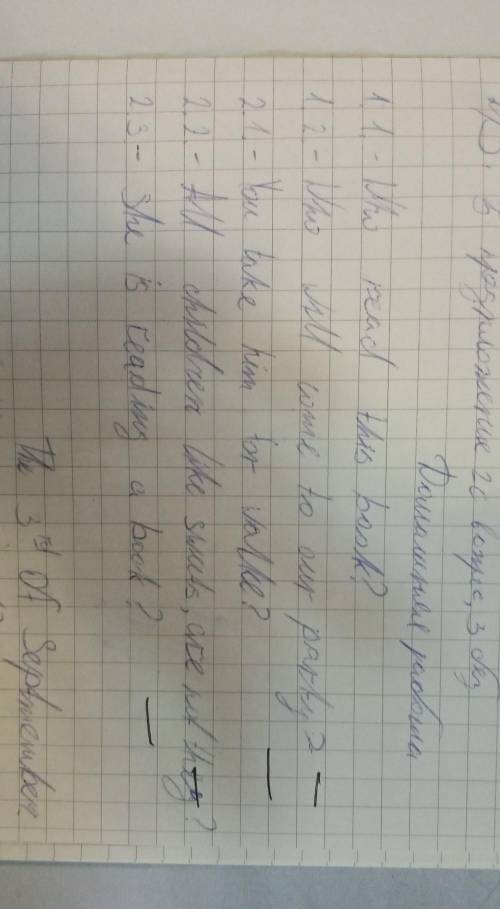 Д: 3 предложение 2с вопрос, 3 без
Домашняя работа
1.1. - Who read this book?
1.2 - Who will come to our party?
2.1. - You take him for walke?
2.2. - All children like sweets, are not they?
2.3. - She is reading a book?
The 3rd Of September.